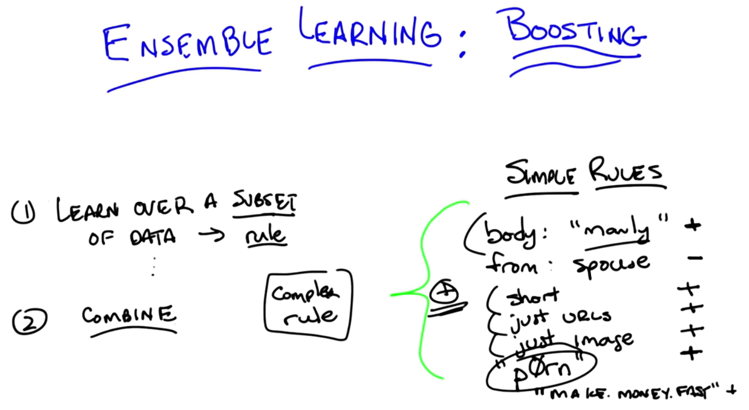 ENSEMBLE LEARNING: BOOSTING
SIMPLE RULES
① LEARN OVER A SUBSET
OF DATA → rule
⋮
② COMBINE
Complex
rule
+
body: "manly" +
from: spouse -
short +
just URLs +
just image +
"pørn" +
"MAKE.MONEY.FAST" +